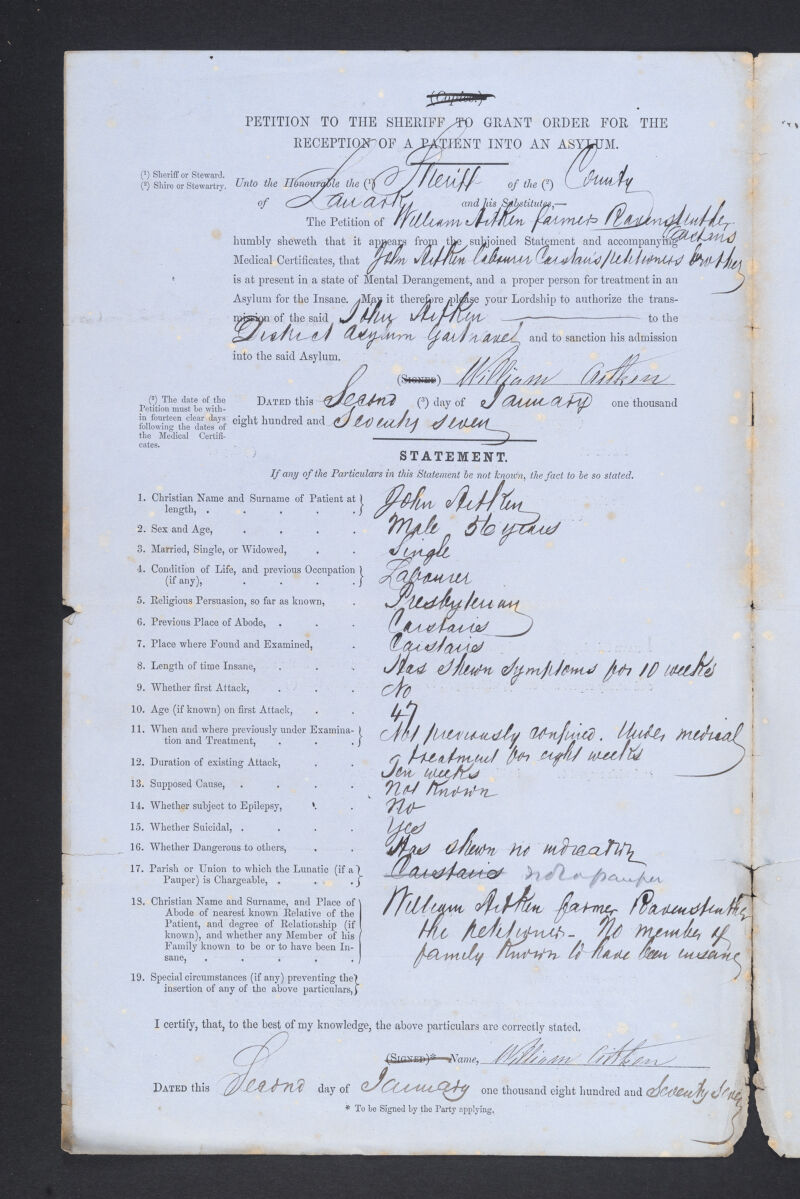 (Copies)
PETITION TO THE SHERIFF TO GRANT ORDER FOR THE
RECEPTION OF A PATIENT INTO AN ASYLUM.
(¹) Sheriff or Steward.
(²) Shire or Stewartry.
Unto the Honourable the (¹) Sheriff of the (²) County
of Lanark and his Substitutes,—
The Petition of William Aitken farmer Ravenstruther
Carstairs
humbly sheweth that it appears from the subjoined Statement and accompanying
Medical Certificates, that John Aitken labourer Carstairs petitioners brother
is at present in a state of Mental Derangement, and a proper person for treatment in an
Asylum for the Insane. May it therefore please your Lordship to authorize the trans-
mission of the said John Aitken to the
District Asylum Gartnavel and to sanction his admission
into the said Asylum.
(SIGNED) William Aitken
(³) The date of the
Petition must be with-
in fourteen clear days
following the dates of
the Medical Certifi-
cates.
DATED this Second (³) day of January one thousand
eight hundred and Seventy seven
STATEMENT.
If any of the Particulars in this Statement be not known, the fact to be so stated.
1. Christian Name and Surname of Patient at
length, . . . . . John Aitken
2. Sex and Age, . . . . Male 56 years
3. Married, Single, or Widowed, . . Single
4. Condition of Life, and previous Occupation
(if any), . . . . . Labourer
5. Religious Persuasion, so far as known, . Presbyterian
6. Previous Place of Abode, . . . Carstairs
7. Place where Found and Examined, . Carstairs
8. Length of time Insane, . . . Has shewn symptoms for 10 weeks
9. Whether first Attack, . . . No
10. Age (if known) on first Attack, . . 47
11. When and where previously under Examina-
tion and Treatment, . . . Not previously confined. Under medical
treatment for eight weeks
12. Duration of existing Attack, . . Ten weeks
13. Supposed Cause, . . . . Not known
14. Whether subject to Epilepsy, . . No
15. Whether Suicidal, . . . . Yes
16. Whether Dangerous to others, . . Has shewn no indication
17. Parish or Union to which the Lunatic (if a
Pauper) is Chargeable, . . . . Carstairs not a pauper
18. Christian Name and Surname, and Place of
Abode of nearest known Relative of the
Patient, and degree of Relationship (if
known), and whether any Member of his
Family known to be or to have been In-
sane, . . . . .
William Aitken farmer Ravenstruther
the petitioner – No member of
family known to have been insane
19. Special circumstances (if any) preventing the
insertion of any of the above particulars,
I certify, that, to the best of my knowledge, the above particulars are correctly stated.
(SIGNED)* Name, William Aitken
DATED this Second day of January one thousand eight hundred and Seventy Seven
* To be Signed by the Party applying.